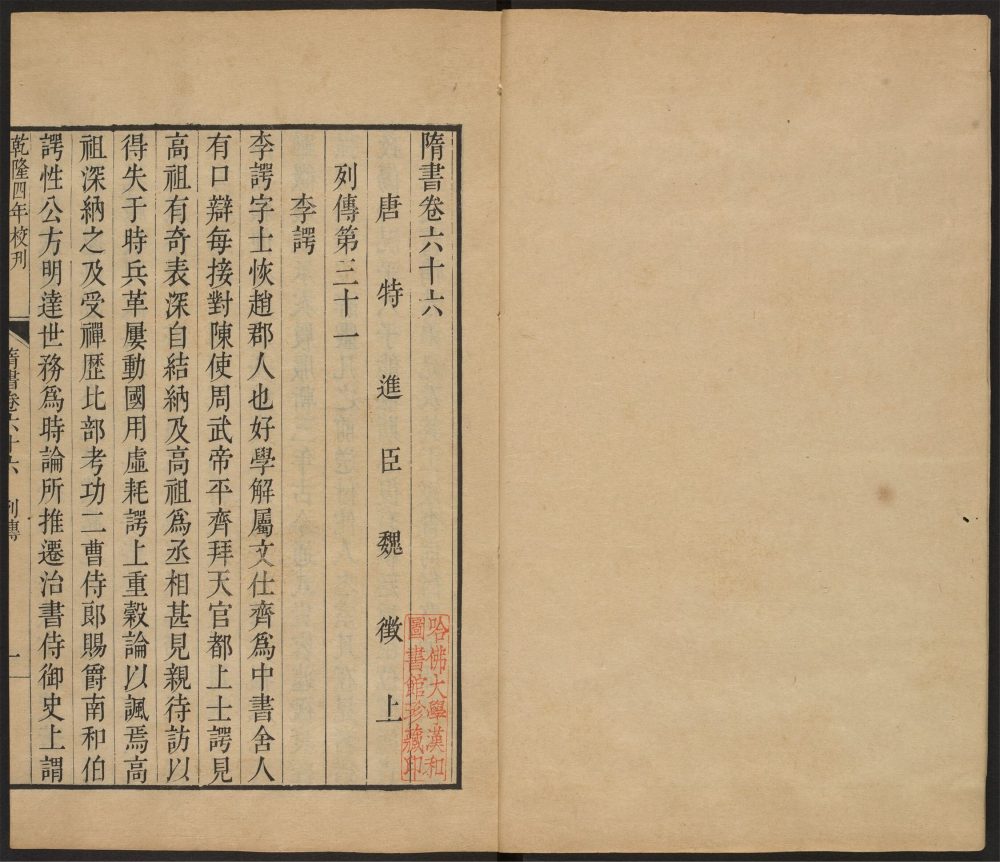 隋書卷六十六
唐特進臣魏徵上
列傳第三十一
李諤
李諤字士恢趙郡人也好學解屬文仕齊爲中書舍人
有口辯每接對陳使周武帝平齊拜天官都上士諤見
高祖有奇表深自結納及高祖爲丞相甚見親待訪以
得失于時兵革屢動國用虛耗諤上重穀論以諷焉高
祖深納之及受禪歷比部考功二曹侍郎賜爵南和伯
諤性公方明達世務爲時論所推遷治書侍御史上謂
乾隆四年校刋
隋書卷六十六 列傳 一
哈佛大學漢和
圖書館珍藏印